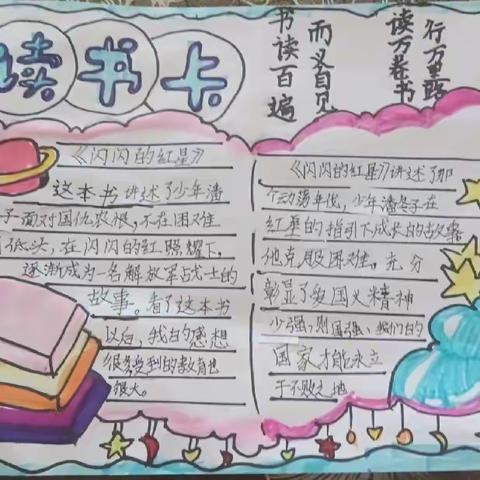 读书卡
书读百遍
而义自见
读万卷书
行万里路
《闪闪的红星》
这本书讲述了少年潘
子面对国仇家恨,不在困难
低头,在闪闪的红照耀下,
逐渐成为一名解放军战士的
故事。看了这本书
以后,我的感想
很多受到的教育也
很大。
《闪闪的红星》讲述了那
个动荡年代,少年潘冬子在
红星的指引下成长的故事
他克服困难,充分
彰显了爱国义精神
少强,则国强、我们的
国家才能永立
于不败之地。